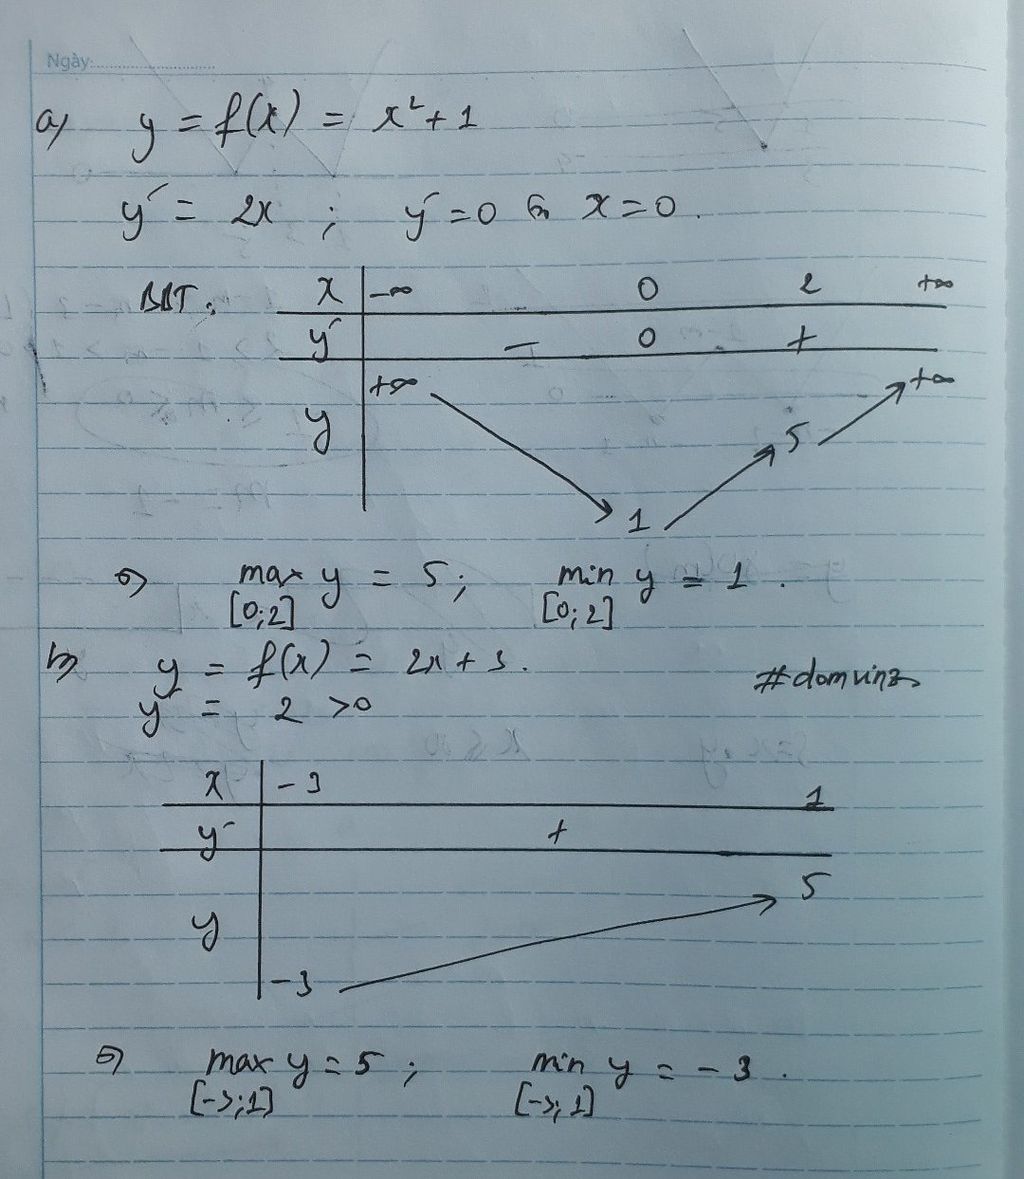 Ngày:
a) y = f(x) = x² + 1
y' = 2x ; y' = 0 x = 0.
BBT: x -∞ 0 2 +∞
y' - 0 +
y +∞ 1 5 +∞
=> max y = 5; min y = 1.
[0;2] [0;2]
b) y = f(x) = 2x + 3.
y' = 2 > 0
#domvinz
x -3 1
y' +
y -3 5
=> max y = 5; min y = -3.
[-3;1] [-3;1]